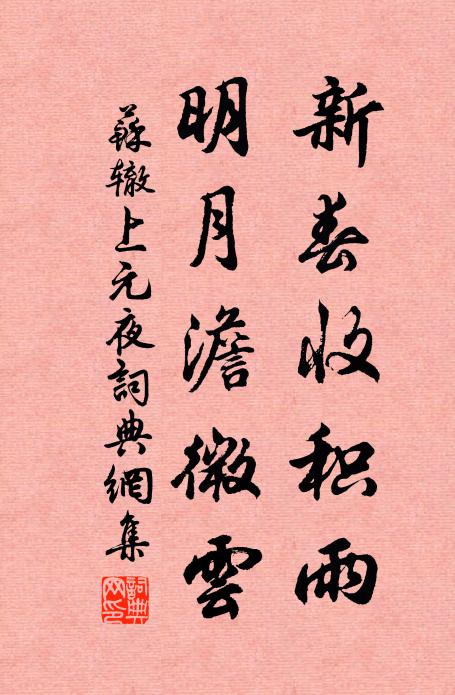 新春收积雨
明月澹微雲
蘇辙上元夜詞典網集
詞典
网印